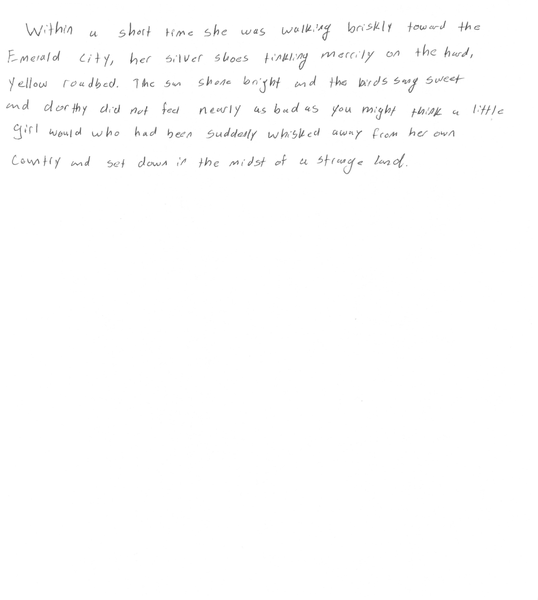 Within a short time she was walking briskly toward the
Emerald City, her silver shoes tinkling merrily on the hard,
Yellow roadbed. The sun shone bright and the birds sang sweet
and dorthy did not feel nearly as bad as you might think a little
Girl would who had been suddenly whisked away from her own
Country and set down in the midst of a strange land.